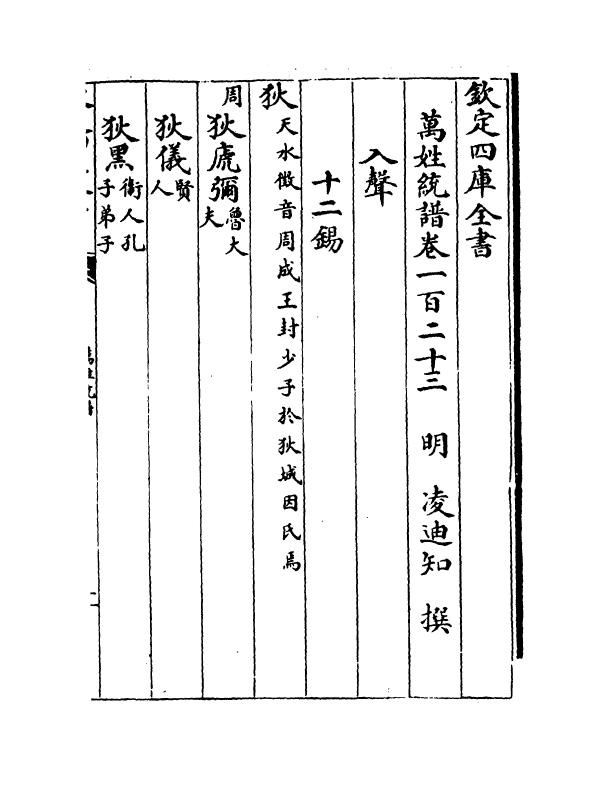 欽定四庫全書
萬姓統譜卷一百二十三 明 凌迪知 撰
入聲
十二錫
狄天水徵音周成王封少子於狄城因氏焉
周 狄虒彌魯大夫
狄儀賢人
狄黑衛人孔子弟子